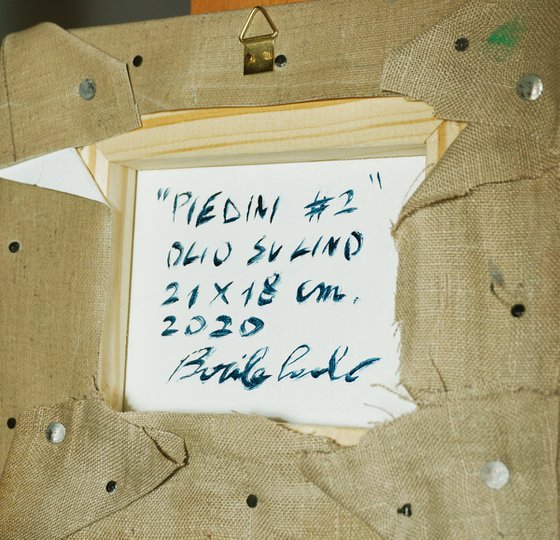 "PIEDINI #2"
OLIO SU LINO
21 X 18 cm.
2020